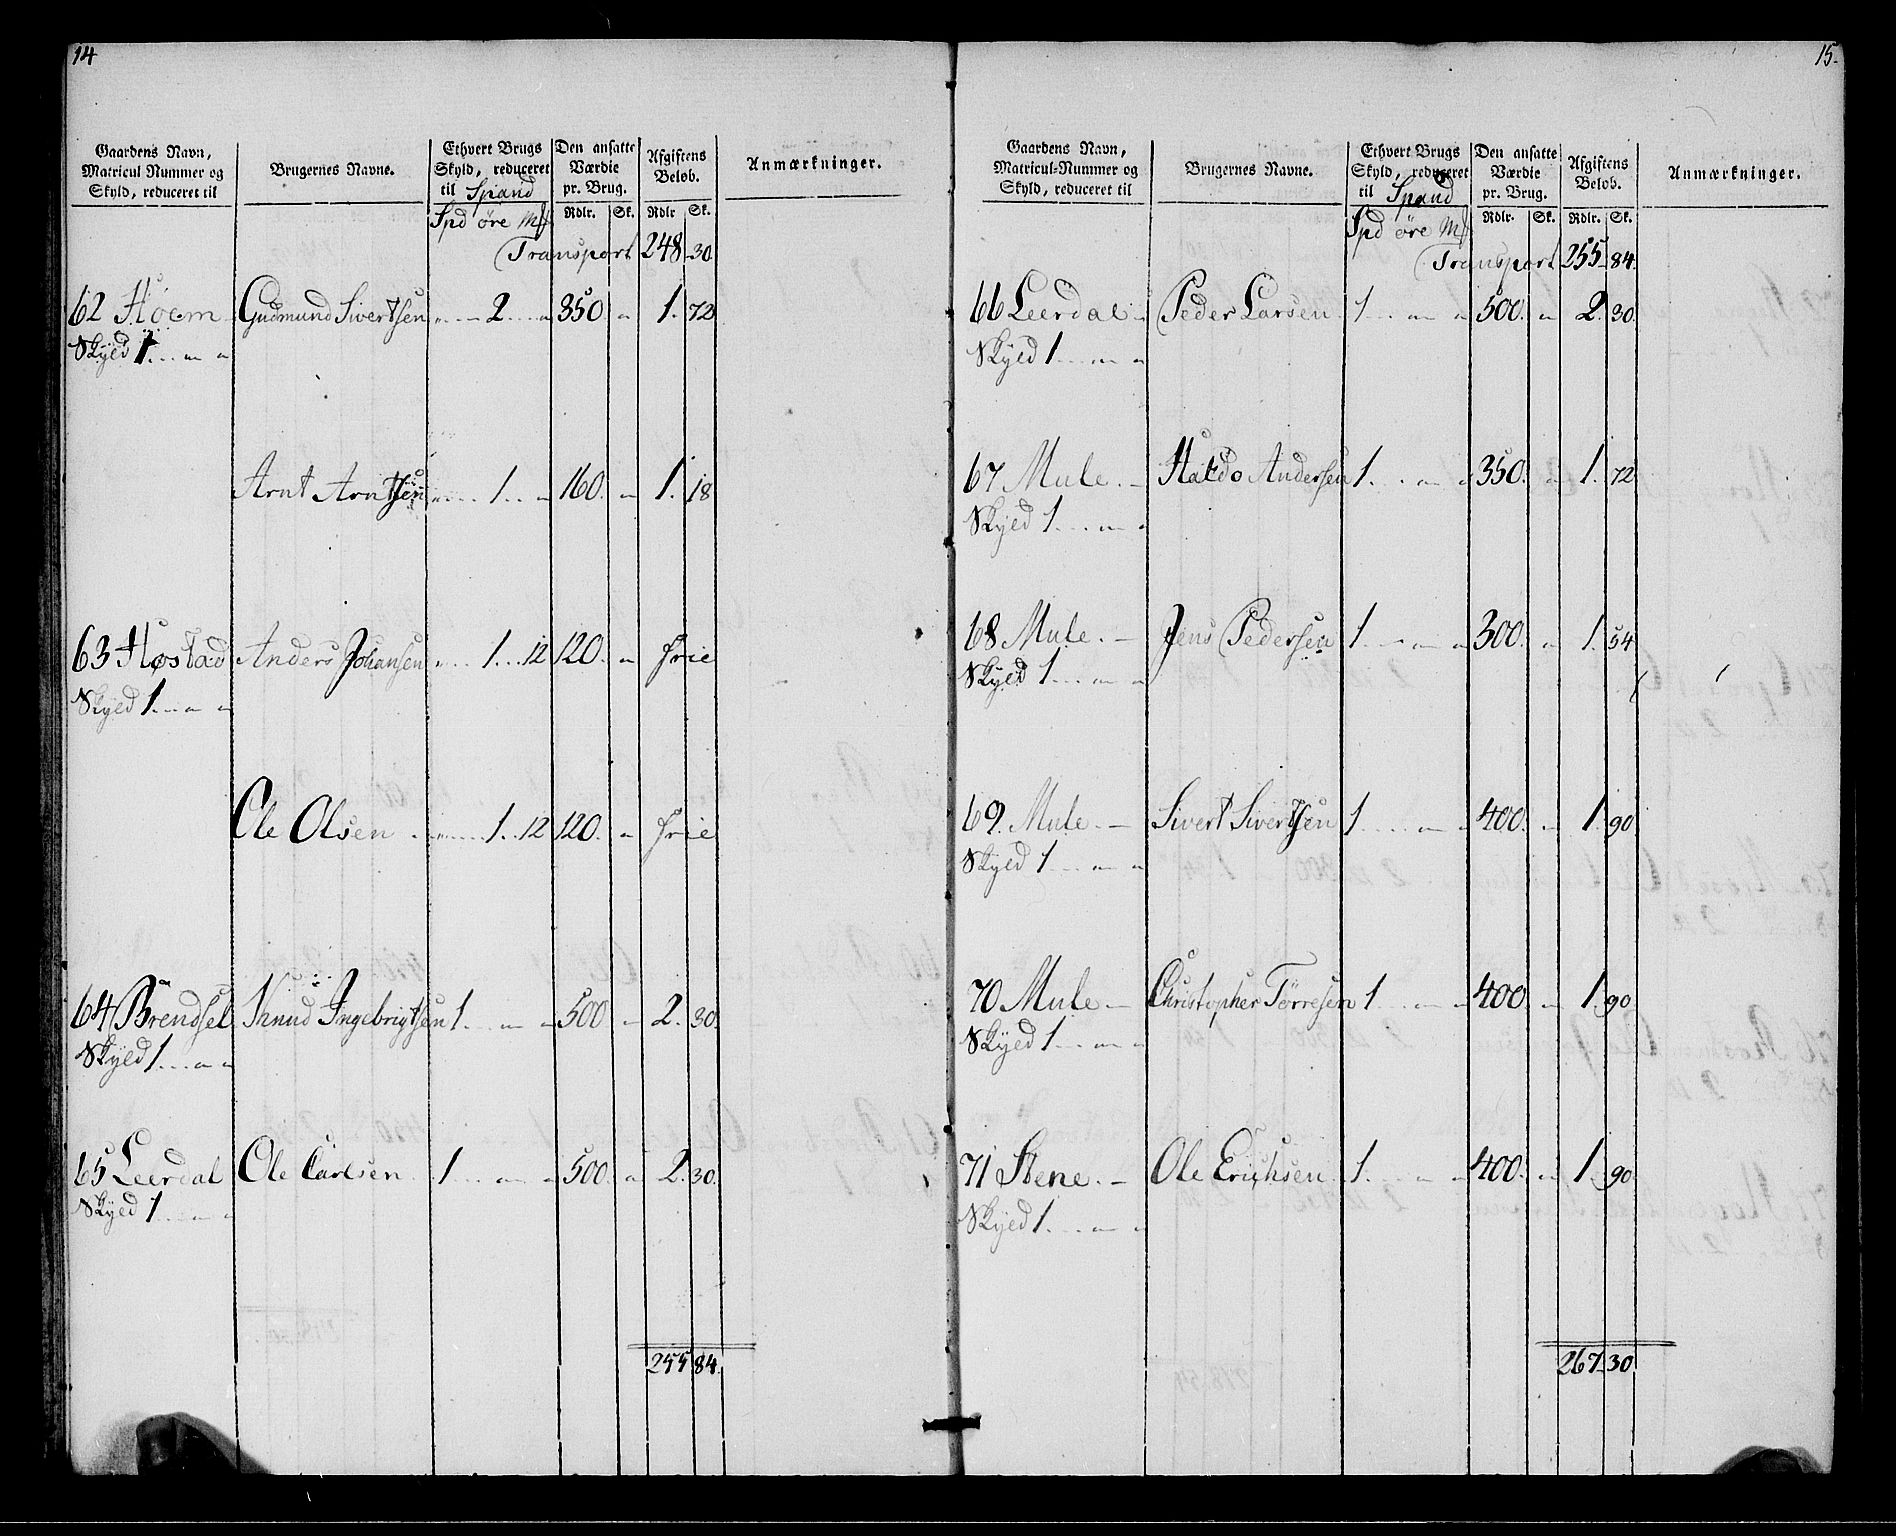 14
Gaardens Navn, Matricul Nummer og Skyld, reduceret til | Brugernes Navne. | Ethvert Brugs Skyld, reduceret til Spand | Den ansatte Værdie pr. Brug. | Afgiftens Beløb. | Anmærkninger.
Spd øre | Rdlr. | Sk. | Rdlr | Sk.
Transport 248 30
62 Høem Gudmund Sivertsen „ 2 „ 350 „ 1. 72
Skyld 1 „ „
Arnt Arntsen „ 1 „ 160. „ 1. 18
63 Høstad Anders Johansen „ 1 12 120. „ frie
Skyld 1 „ „
Ole Olsen „ 1 12 120. „ frie
64 Brendsel Knud Ingebrigtsen 1 „ „ 500 „ 2. 30.
Skyld 1 „ „
65 Leerdal Ole Carlsen 1 „ „ 500. „ 2. 30.
Skyld 1 „ „
255 84.
15.
Gaardens Navn, Matricul-Nummer og Skyld, reduceret til | Brugernes Navne. | Ethvert Brugs Skyld, reduceret til Spand | Den ansatte Værdie pr. Brug. | Afgiftens Beløb. | Anmærkninger.
Spd øre | Rdlr. | Sk. | Rdlr. | Sk.
Transport 255 84.
66 Leerdal Peder Larsen 1 „ „ 500. „ 2. 30.
Skyld 1 „ „
67 Mule. Haldo Andersen 1 „ „ 350. „ 1. 72
Skyld 1 „ „
68 Mule. Jens Pedersen 1 „ „ 300. „ 1. 54
Skyld 1 „ „
69. Mule. Sivert Sivertsen 1 „ „ 400. „ 1. 90
Skyld 1 „ „
70 Mule Christopher Tørresen 1 „ „ 400 „ 1. 90
Skyld 1 „ „
71 Stene. Ole Erichsen 1 „ „ 400. „ 1. 90
Skyld 1 „ „
267 30